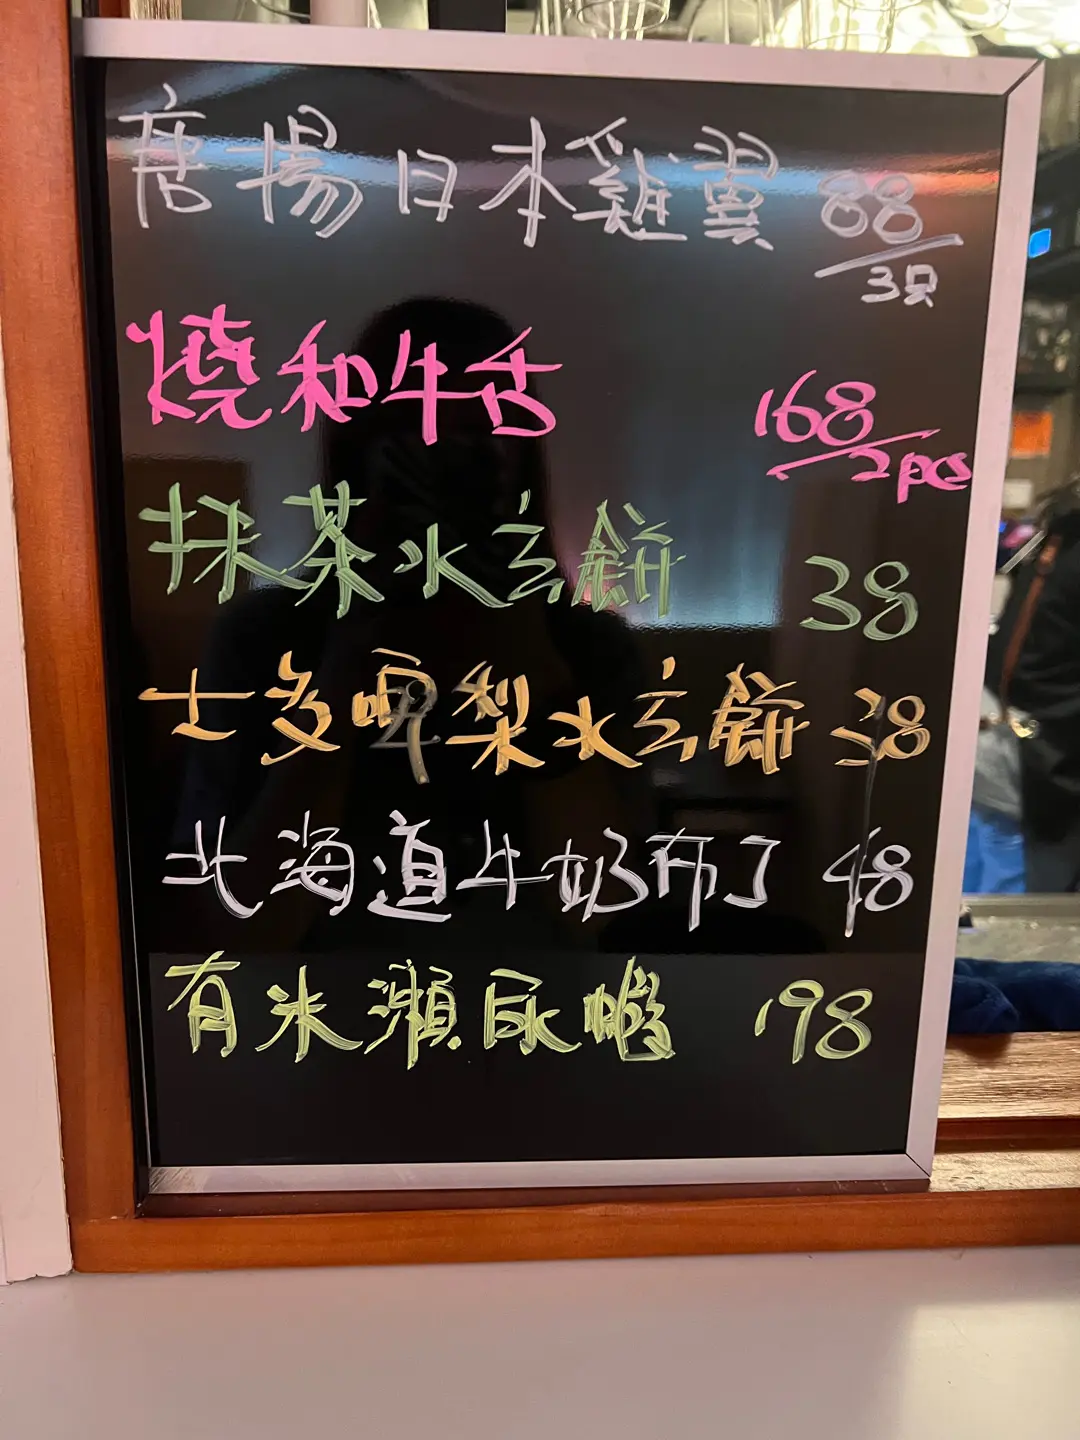 唐揚日本雞翼 88/3只
燒和牛舌 168/2pcs
抹茶水玄餅 38
士多啤梨水玄餅 38
北海道牛奶布丁 48
有米瀨尿蝦 198